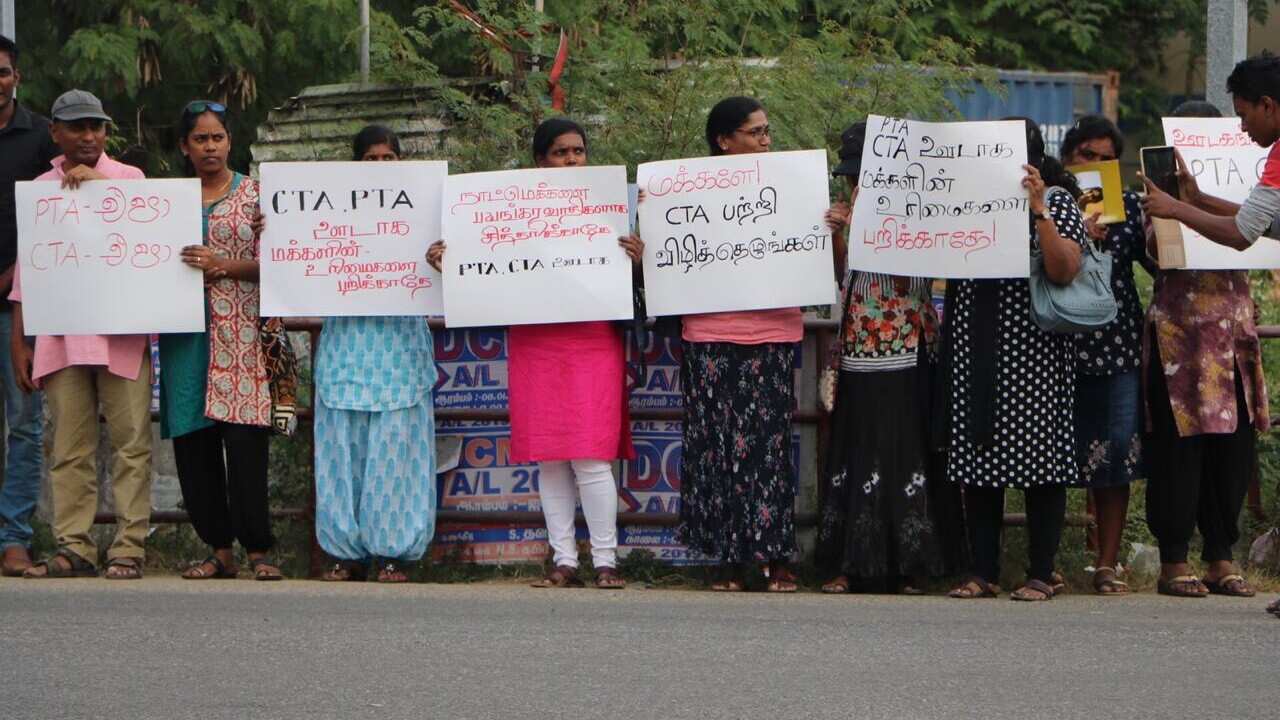 PTA-එපා
CTA-එපා
CTA, PTA
ஊடாக
மக்களின் -
உரிமைகளை
பறிக்காதே
நாட்டுமக்களை
பயங்கரவாதிகளாக
சித்தரிக்காதே
PTA, CTA ஊடாக
மக்களே!
CTA பற்றி
விழித்தெழுங்கள்
PTA
CTA ஊடாக
மக்களின்
உரிமைகளை
பறிக்காதே!
PTA
A/L
A/L
A/L 2
A/L